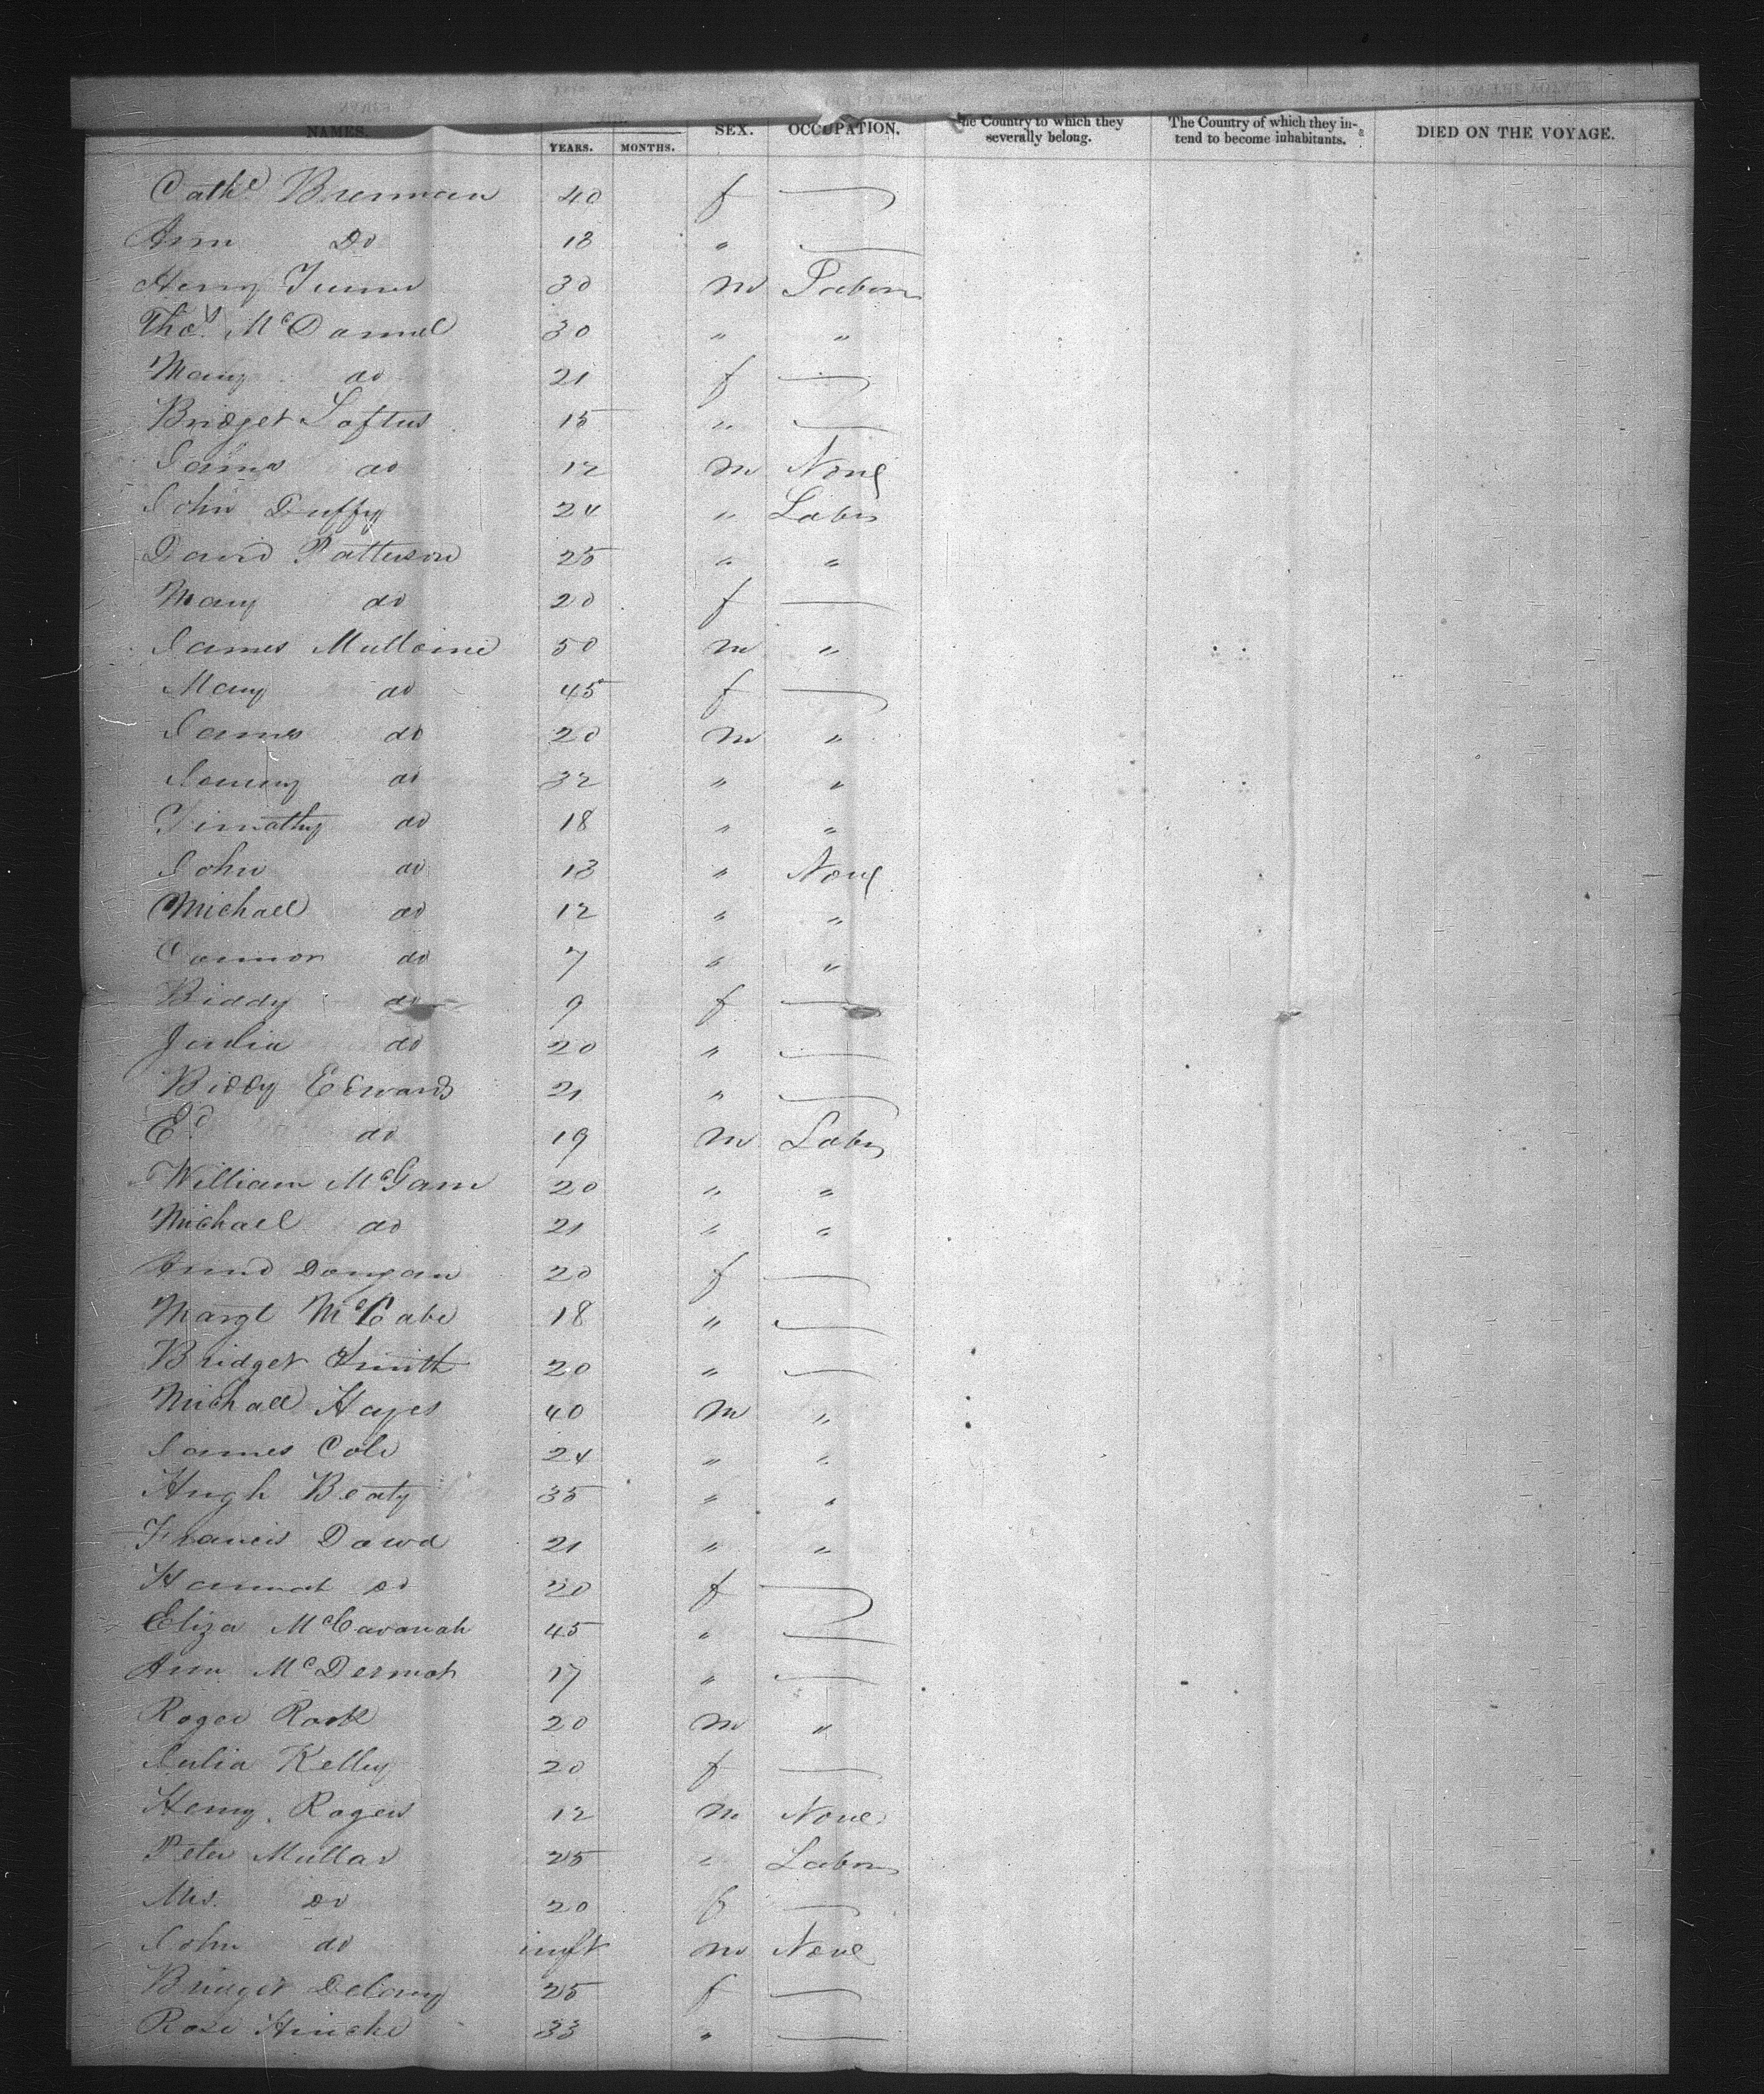 NAMES. YEARS. MONTHS. SEX. OCCUPATION. the Country to which they severally belong. The Country of which they intend to become inhabitants. DIED ON THE VOYAGE.
Cathe Brennan 40 f —
Ann Do 18 " —
Henry 30 m Labor
Thos McDannel 30 " "
Mary do 21 f —
Bridget Loftus 15 " —
James do 12 m None
John Duffy 24 " Labr
David Patterson 25 " "
Mary do 20 f —
James Mulloine 50 m "
Mary do 45 f —
James do 20 m "
do 32 " "
Timothy do 18 " "
John do 13 " None
Michael do 12 " "
Connor do 7 " "
Biddy do 9 f —
Julia do 20 " —
Biddy Edwards 21 " —
Ed do 19 m Labr
William McGann 20 " "
Michael do 21 " "
Dongan 20 f —
Margt McCabe 18 " —
Bridget Smith 20 " —
Michael Hayes 40 m "
James Cole 24 " "
Hugh Beaty 35 " "
Francis Dowd 21 " "
Hannah Do 20 f —
Eliza McCavanah 45 " —
Ann McDermot 17 " —
Roger 20 m "
Julia Kelly 20 f —
Henry Rogers 12 m None
Peter Mullar 25 " Labor
Mrs. Do 20 f —
John do inft m None
Bridget Delany 25 f —
Rose 33 " —